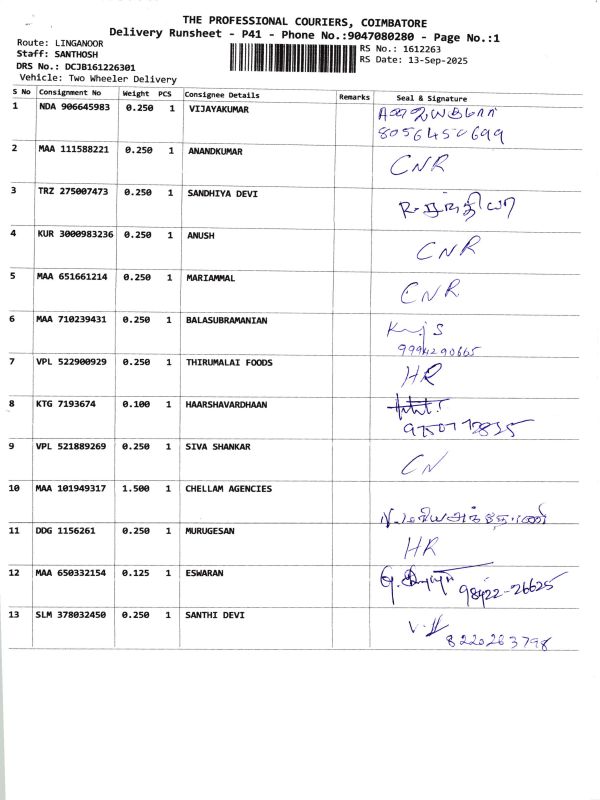 THE PROFESSIONAL COURIERS, COIMBATORE
Delivery Runsheet - P41 - Phone No.:9047080280 - Page No.:1
Route: LINGANOOR
Staff: SANTHOSH
DRS No.: DCJB161226301
Vehicle: Two Wheeler Delivery
RS No.: 1612263
RS Date: 13-Sep-2025
S No Consignment No Weight PCS Consignee Details Remarks Seal & Signature
1 NDA 906645983 0.250 1 VIJAYAKUMAR
8056450699
2 MAA 111588221 0.250 1 ANANDKUMAR CNR
3 TRZ 275007473 0.250 1 SANDHIYA DEVI
4 KUR 3000983236 0.250 1 ANUSH CNR
5 MAA 651661214 0.250 1 MARIAMMAL CNR
6 MAA 710239431 0.250 1 BALASUBRAMANIAN
9994290665
7 VPL 522900929 0.250 1 THIRUMALAI FOODS HR
8 KTG 7193674 0.100 1 HAARSHAVARDHAAN
9 VPL 521889269 0.250 1 SIVA SHANKAR CN
10 MAA 101949317 1.500 1 CHELLAM AGENCIES
11 DDG 1156261 0.250 1 MURUGESAN HR
12 MAA 650332154 0.125 1 ESWARAN
98422-26625
13 SLM 378032450 0.250 1 SANTHI DEVI
8220263798